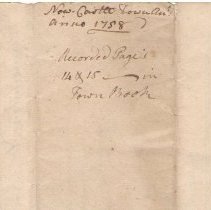 New Castle
Anno 1758
Recorded Page's
14 & 15 — in
Town Book